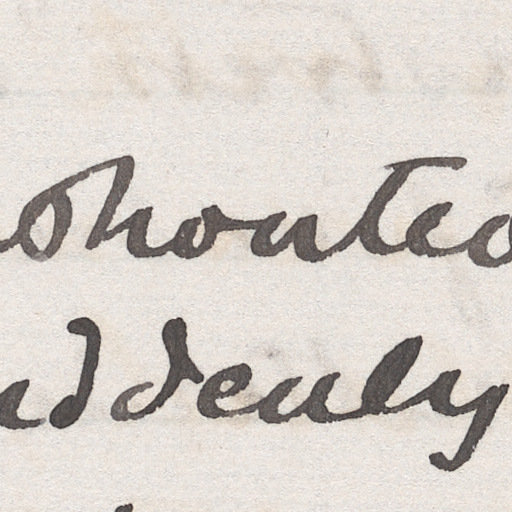 shouted
uddenly